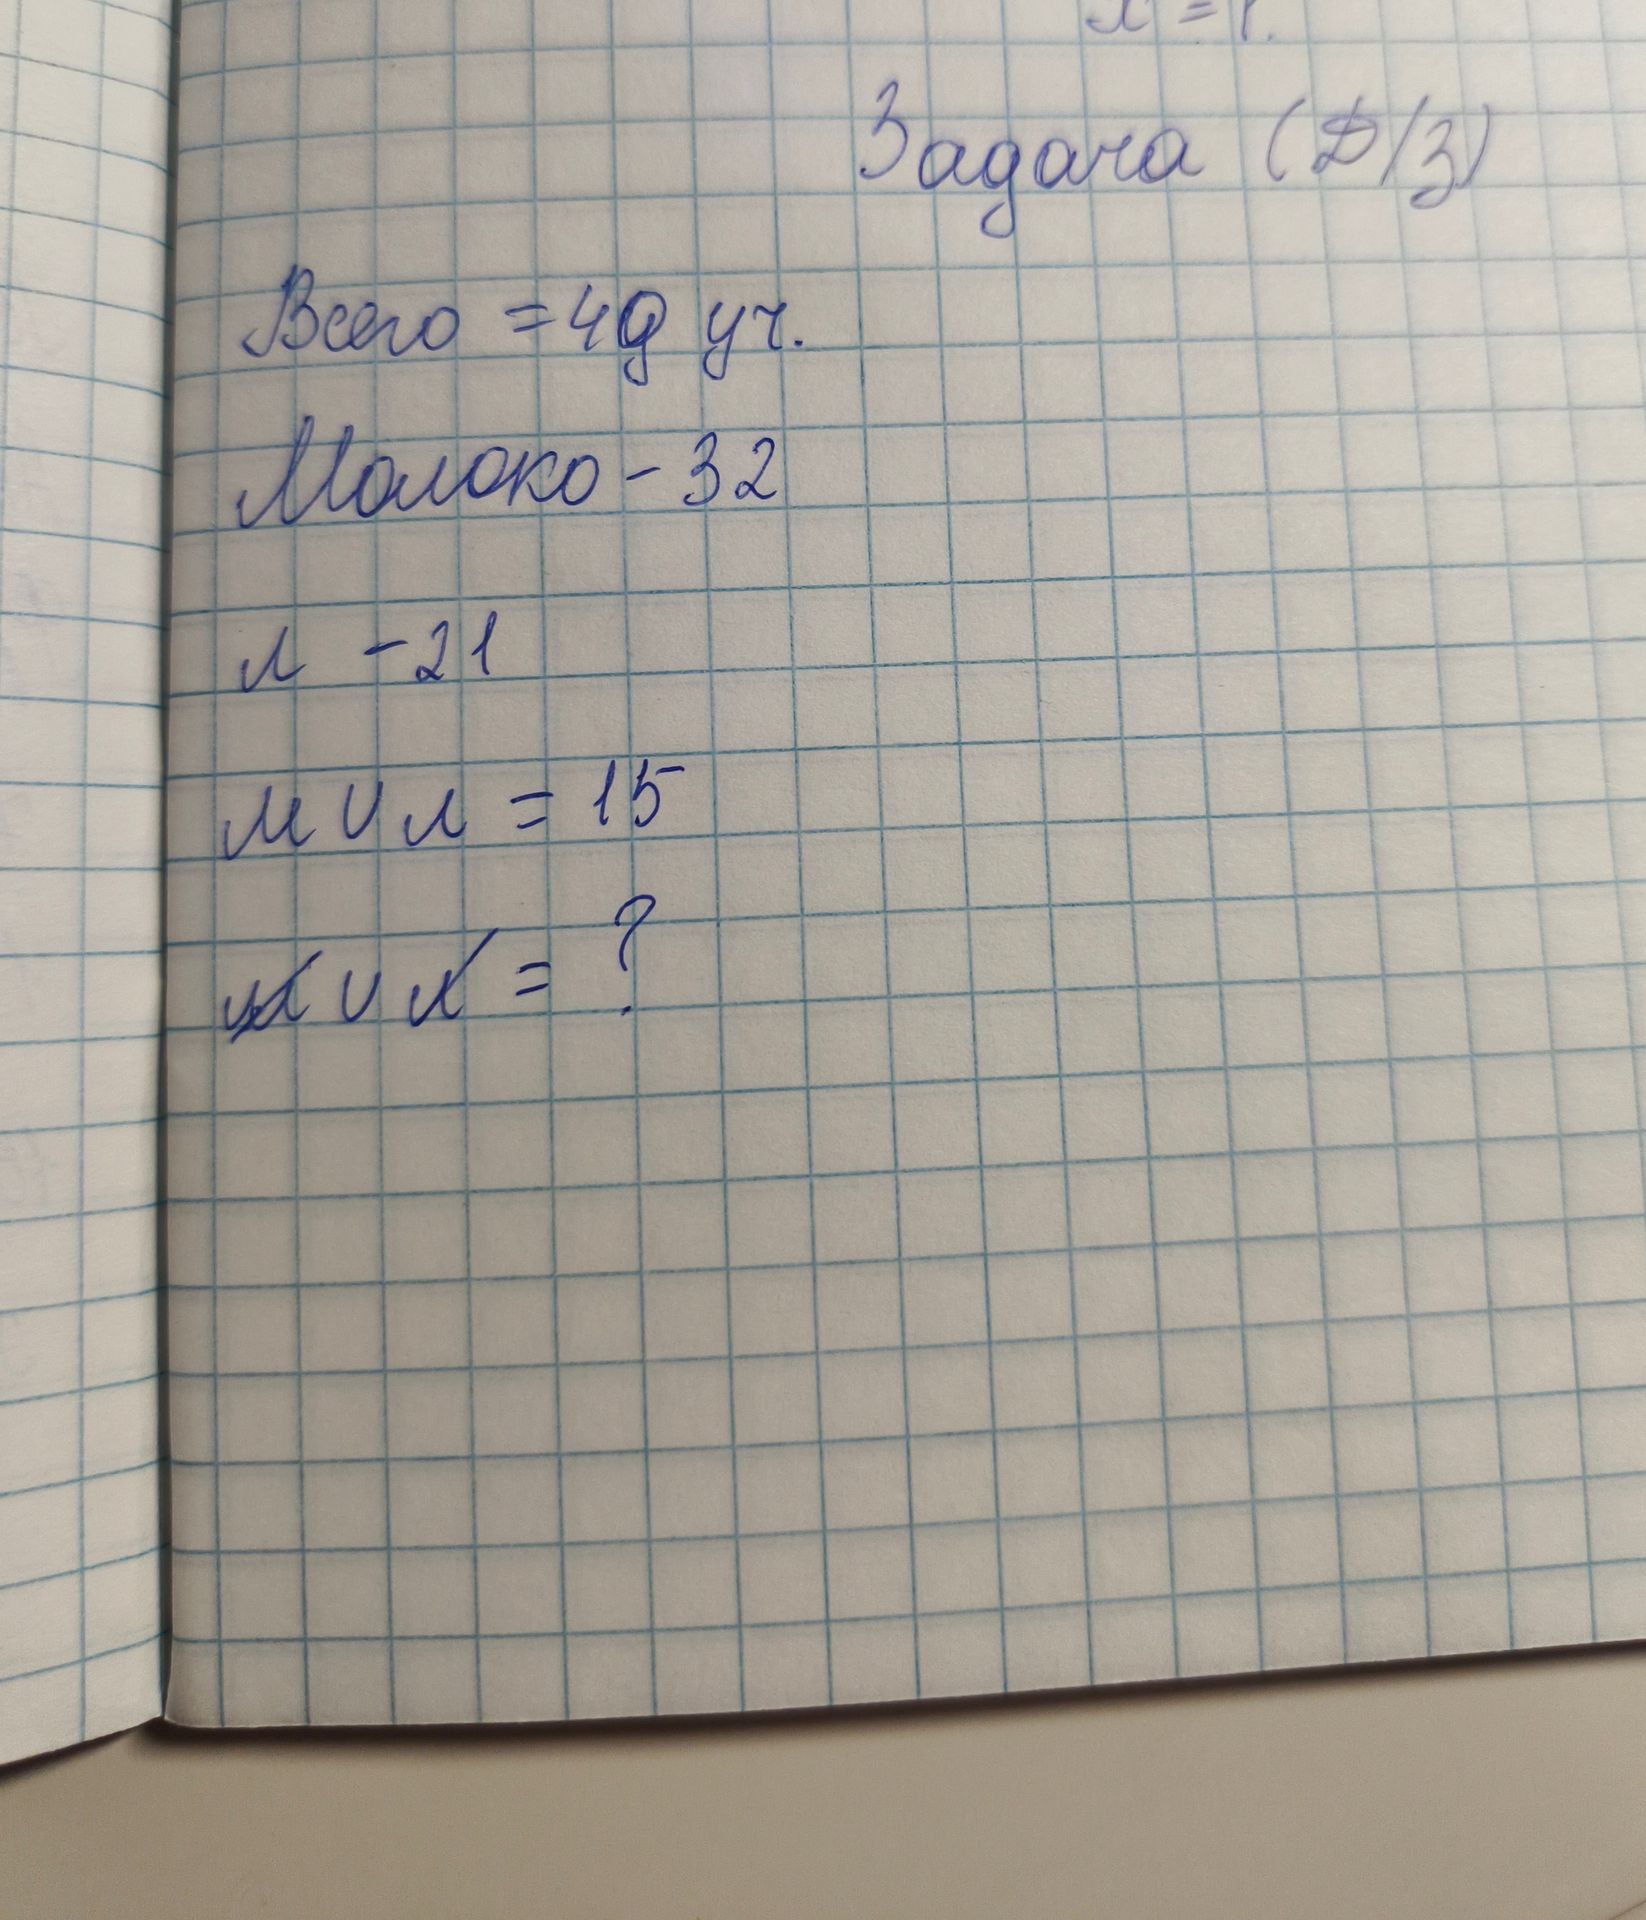 x = 1.
Задача (Д/З)
Всего = 40 уч.
Молоко - 32
л - 21
м U л = 15
м̸ U л̸ = ?